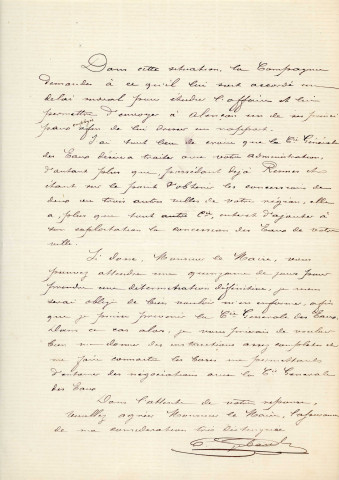 Dans cette situation, la Compagnie
demande à ce qu'il lui soit accordé un
délai moral pour étudier l'affaire et lui
permettre d'envoyer à Alençon un de ses
afin de lui donner un rapport.
J'ai tout lieu de croire que la Cie Générale
des Eaux désirera traiter avec votre administration,
d'autant plus que possédant déjà Rennes et
étant sur le point d'obtenir les concessions de
deux ou trois autres villes de votre région, elle
a plus que toute autre Cie intérêt d'ajouter à
son exploitation la concession des Eaux de votre
ville.
Si donc, Monsieur le Maire, vous
pouvez attendre une quinzaine de jours pour
prendre une détermination définitive, je vous
serai obligé de bien vouloir m'en informer, afin
que je puisse prévenir la Cie Générale des Eaux.
Dans ce cas alors, je vous prierais de vouloir
bien me donner des instructions assez complètes et
me faire connaître les bases me permettant
d'entamer des négociations avec la Cie Générale
des Eaux.
Dans l'attente de votre réponse,
veuillez agréer Monsieur le Maire, l'assurance
de ma considération très distinguée